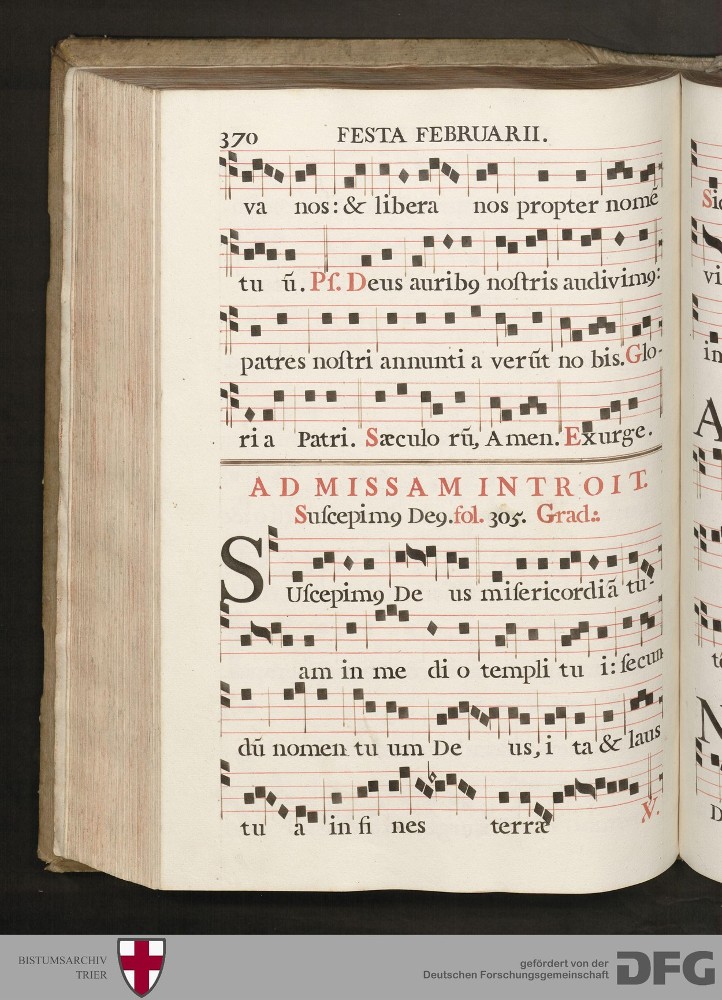 370 FESTA FEBRUARII.
va nos: & libera nos propter nomẽ
tu ũ. Pſ. Deus auribꝯ noſtris audivimꝯ:
patres noſtri annunti a verũt no bis. Glo-
ri a Patri. Sæculo rũ, Amen. Exurge.
AD MISSAM INTROIT.
Suſcepimꝯ Deꝯ. fol. 305. Grad.:
SUſcepimꝯ De us miſericordiã tu-
am in me di o templi tu i: ſecun
dũ nomen tu um De us, i ta & laus
tu a in fi nes terræ
V.
Si
vi
im
A
N
D
BISTUMSARCHIV
TRIER
gefördert von der
Deutschen Forschungsgemeinschaft
DFG